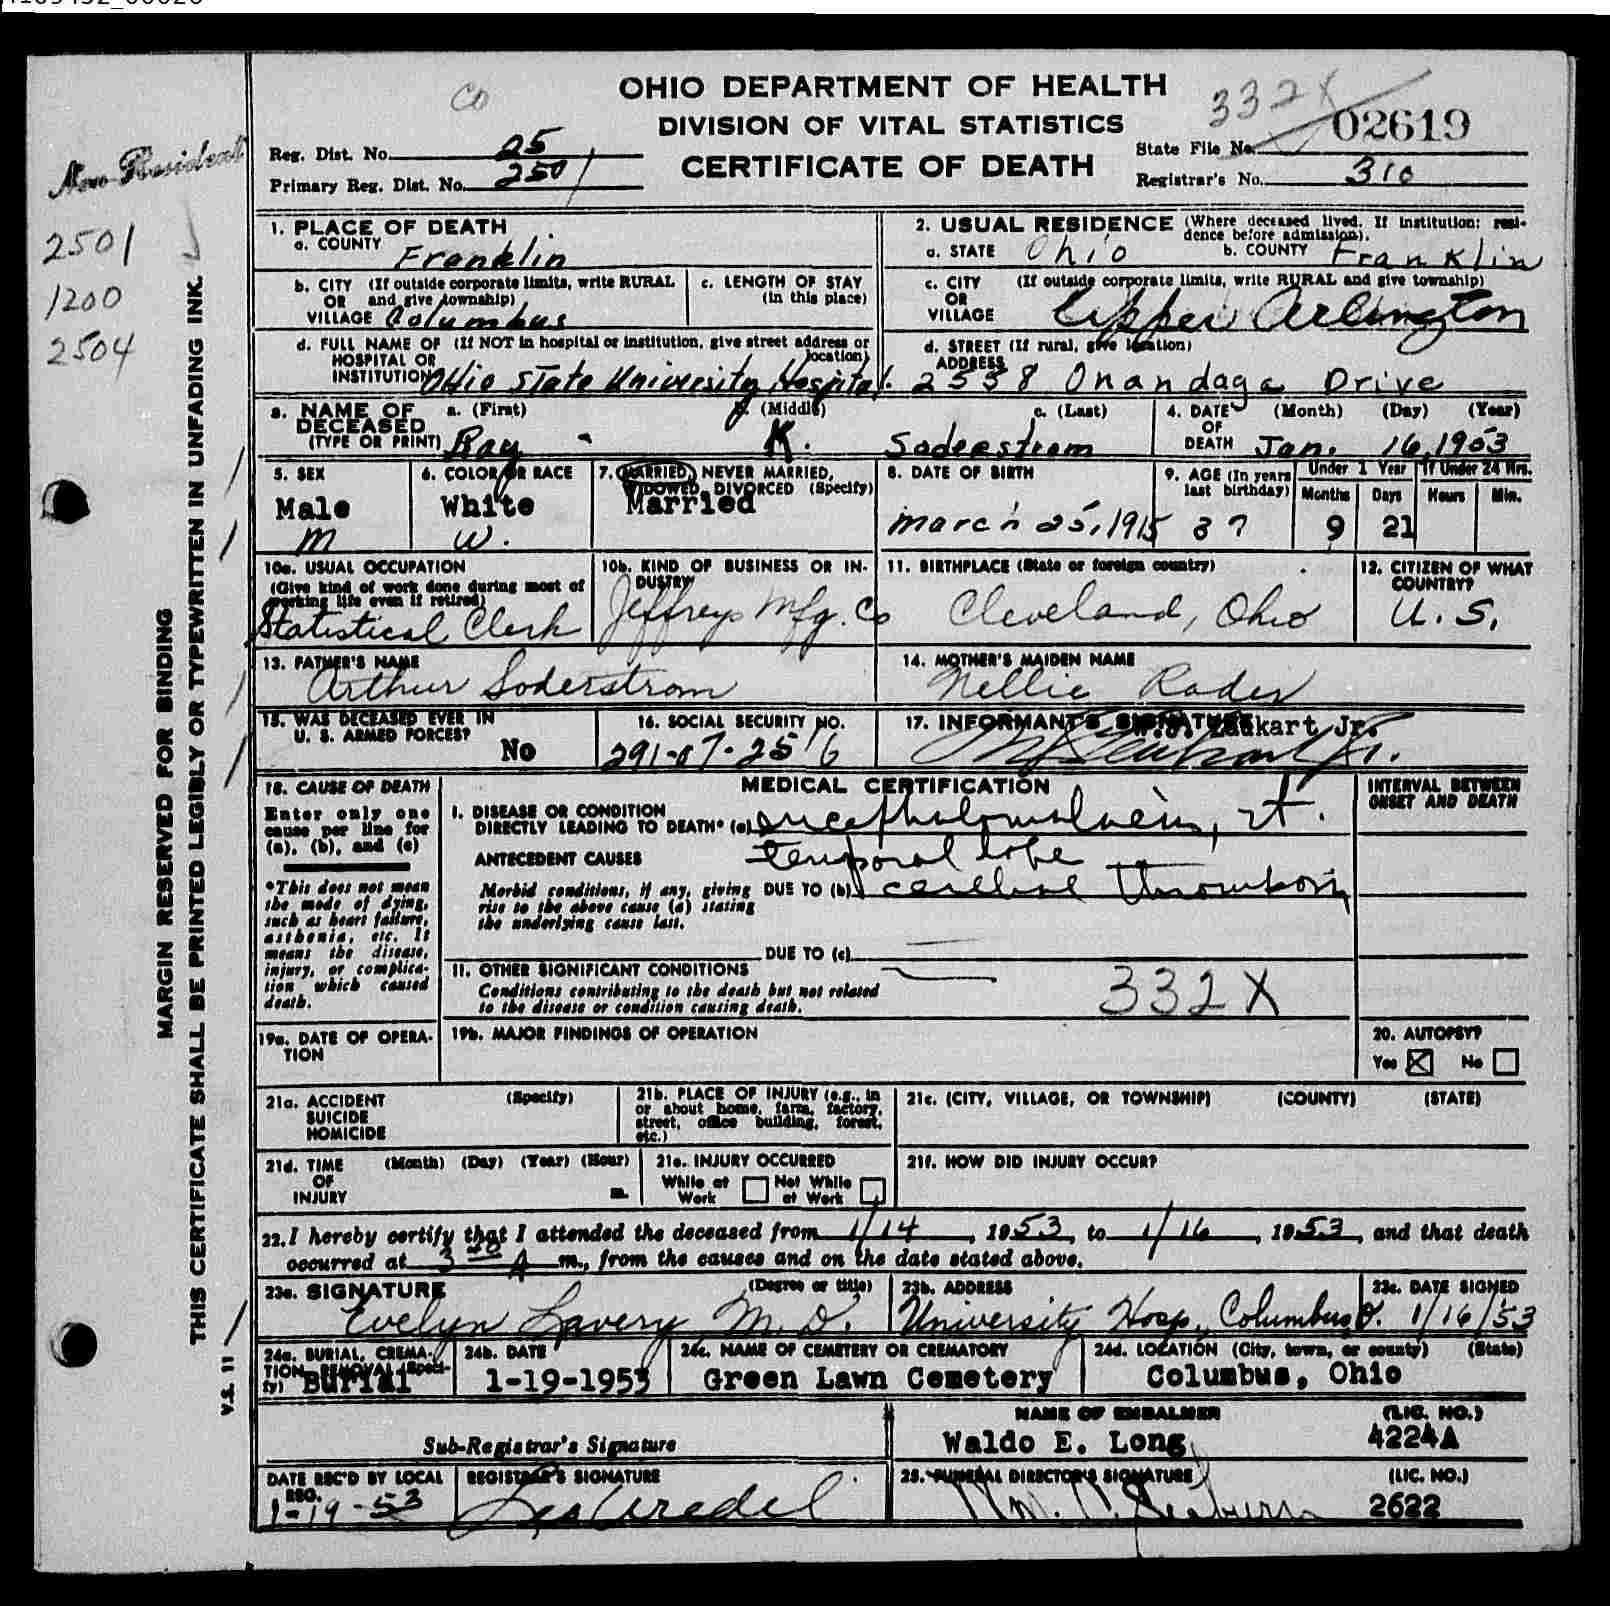 OHIO DEPARTMENT OF HEALTH
DIVISION OF VITAL STATISTICS
CERTIFICATE OF DEATH
Co
332X
Reg. Dist. No. 25
Primary Reg. Dist. No. 2501
State File No. 02619
Registrar's No. 310
Non Resident
2501
1200
2504
MARGIN RESERVED FOR BINDING
THIS CERTIFICATE SHALL BE PRINTED LEGIBLY OR TYPEWRITTEN IN UNFADING INK.
V.S. 11
1. PLACE OF DEATH
a. COUNTY Franklin
b. CITY (If outside corporate limits, write RURAL
OR and give township)
VILLAGE Columbus
c. LENGTH OF STAY
(in this place)
d. FULL NAME OF (If NOT in hospital or institution, give street address or
HOSPITAL OR location)
INSTITUTION Ohio State University Hospital.
2. USUAL RESIDENCE (Where deceased lived. If institution: resi-
dence before admission).
a. STATE Ohio b. COUNTY Franklin
c. CITY (If outside corporate limits, write RURAL and give township)
OR
VILLAGE Upper Arlington
d. STREET (If rural, give location)
ADDRESS
2558 Onandaga Drive
3. NAME OF DECEASED
(TYPE OR PRINT)
a. (First) b. (Middle) c. (Last)
Ray K. Soderstrom
4. DATE OF DEATH (Month) (Day) (Year)
Jan. 16, 1953
5. SEX
Male
M
6. COLOR OR RACE
White
W.
7. MARRIED, NEVER MARRIED,
WIDOWED, DIVORCED (Specify)
Married
8. DATE OF BIRTH
March 25, 1915
9. AGE (In years
last birthday)
37
Under 1 Year If Under 24 Hrs.
Months Days Hours Min.
9 21
10a. USUAL OCCUPATION
(Give kind of work done during most of
working life even if retired)
Statistical Clerk
10b. KIND OF BUSINESS OR IN-
DUSTRY
Jeffreys Mfg. Co
11. BIRTHPLACE (State or foreign country)
Cleveland, Ohio
12. CITIZEN OF WHAT
COUNTRY?
U. S.
13. FATHER'S NAME
Arthur Soderstrom
14. MOTHER'S MAIDEN NAME
Nellie Rader
15. WAS DECEASED EVER IN
U. S. ARMED FORCES?
No
16. SOCIAL SECURITY NO.
291-07-2516
17. INFORMANT'S SIGNATURE
Laukart Jr.
18. CAUSE OF DEATH
Enter only one
cause per line for
(a), (b), and (c)
*This does not mean
the mode of dying,
such as heart failure,
asthenia, etc. It
means the disease,
injury, or complica-
tion which caused
death.
MEDICAL CERTIFICATION
INTERVAL BETWEEN
ONSET AND DEATH
I. DISEASE OR CONDITION
DIRECTLY LEADING TO DEATH* (a) encephalomalacia, rt.
temporal lobe
ANTECEDENT CAUSES
Morbid conditions, if any, giving
rise to the above cause (a) stating
the underlying cause last.
DUE TO (b) cerebral thrombosis
DUE TO (c)
11. OTHER SIGNIFICANT CONDITIONS
Conditions contributing to the death but not related
to the disease or condition causing death.
332X
19a. DATE OF OPERA-
TION
19b. MAJOR FINDINGS OF OPERATION
20. AUTOPSY?
Yes ☒ No ☐
21a. ACCIDENT (Specify)
SUICIDE
HOMICIDE
21b. PLACE OF INJURY (e.g., in
or about home, farm, factory,
street, office building, forest,
etc.)
21c. (CITY, VILLAGE, OR TOWNSHIP) (COUNTY) (STATE)
21d. TIME (Month) (Day) (Year) (Hour)
OF
INJURY m.
21e. INJURY OCCURRED
While at Work ☐ Not While at Work ☐
21f. HOW DID INJURY OCCUR?
22. I hereby certify that I attended the deceased from 1/14, 1953, to 1/16, 1953, and that death
occurred at 3 40 A m., from the causes and on the date stated above.
23a. SIGNATURE (Degree or title)
Evelyn Lavery M. D.
23b. ADDRESS
University Hosp, Columbus O.
23c. DATE SIGNED
1/16/53
24a. BURIAL, CREMA-
TION, REMOVAL (Speci-
fy) Burial
24b. DATE
1-19-1953
24c. NAME OF CEMETERY OR CREMATORY
Green Lawn Cemetery
24d. LOCATION (City, town, or county) (State)
Columbus, Ohio
Sub-Registrar's Signature
NAME OF EMBALMER (LIC. NO.)
Waldo E. Long 4224A
DATE REC'D BY LOCAL
REG.
1-19-53
REGISTRAR'S SIGNATURE
25. FUNERAL DIRECTOR'S SIGNATURE (LIC. NO.)
2622